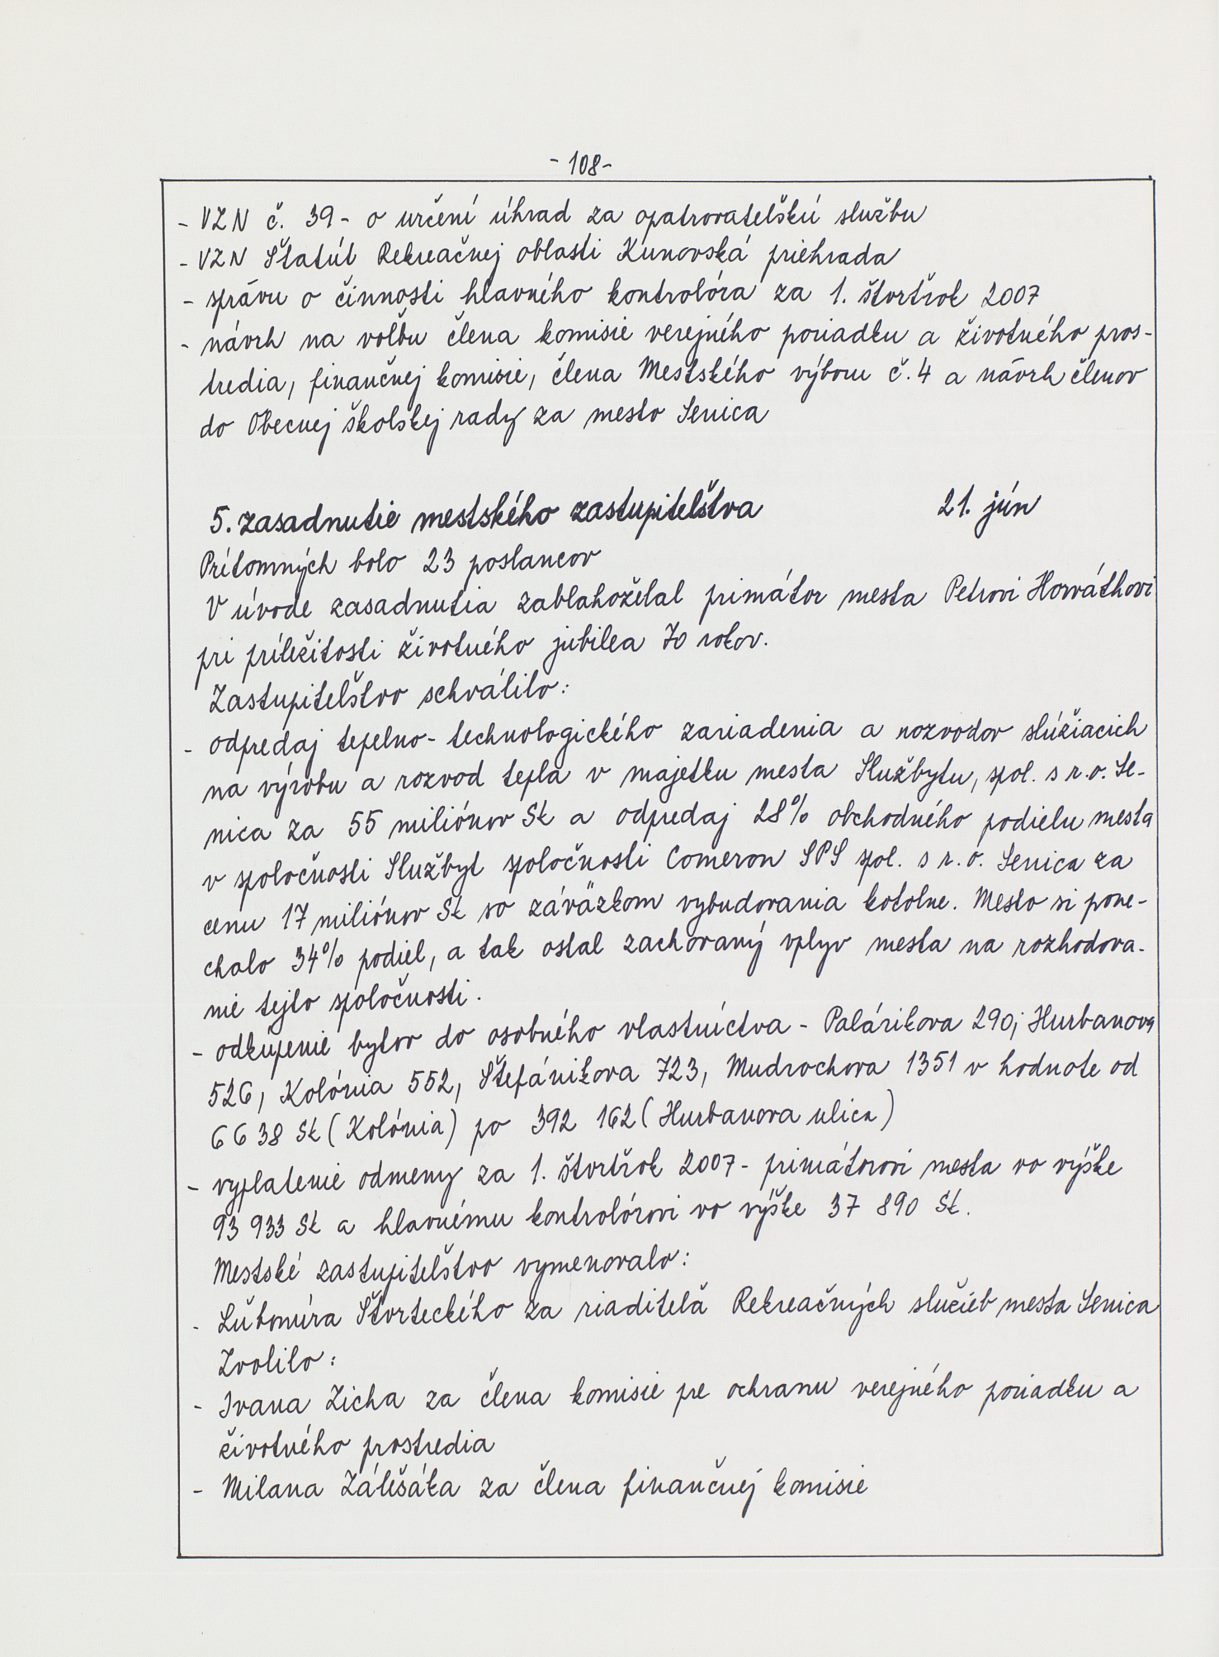 - 108 -
- VZN č. 39 - o určení úhrad za opatrovateľskú službu
- VZN Štatút Rekreačnej oblasti Kunovská priehrada
- správu o činnosti hlavného kontrolóra za 1. štvrťrok 2007
- návrh na voľbu člena komisie verejného poriadku a životného pros-
tredia, finančnej komisie, člena Mestského výboru č. 4 a návrh členov
do Obecnej školskej rady za mesto Senica
5. zasadnutie mestského zastupiteľstva 21. jún
Prítomných bolo 23 poslancov
V úvode zasadnutia zablahoželal primátor mesta Petrovi Horváthovi
pri príležitosti životného jubilea 70 rokov.
Zastupiteľstvo schválilo:
- odpredaj tepelno-technologického zariadenia a rozvodov slúžiacich
na výrobu a rozvod tepla v majetku mesta Službytu, spol. s r. o. Se-
nica za 55 miliónov Sk a odpredaj 28% obchodného podielu mesta
v spoločnosti Službyt spoločnosti Comeron SPS spol. s r. o. Senica za
cenu 17 miliónov Sk so záväzkom vybudovania kotolne. Mesto si pone-
chalo 34% podiel, a tak ostal zachovaný vplyv mesta na rozhodova-
nie tejto spoločnosti.
- odkúpenie bytov do osobného vlastníctva - Palárikova 290, Hurbanova
526, Kolónia 552, Štefánikova 723, Mudrochova 1351 v hodnote od
6638 Sk (Kolónia) po 392 162 (Hurbanova ulica)
- vyplatenie odmeny za 1. štvrťrok 2007 - primátorovi mesta vo výške
93 933 Sk a hlavnému kontrolórovi vo výške 37 890 Sk.
Mestské zastupiteľstvo vymenovalo:
- Ľubomíra Štvrteckého za riaditeľa Rekreačných služieb mesta Senica
Zvolilo:
- Ivana Zicha za člena komisie pre ochranu verejného poriadku a
životného prostredia
- Milana Zálešáka za člena finančnej komisie